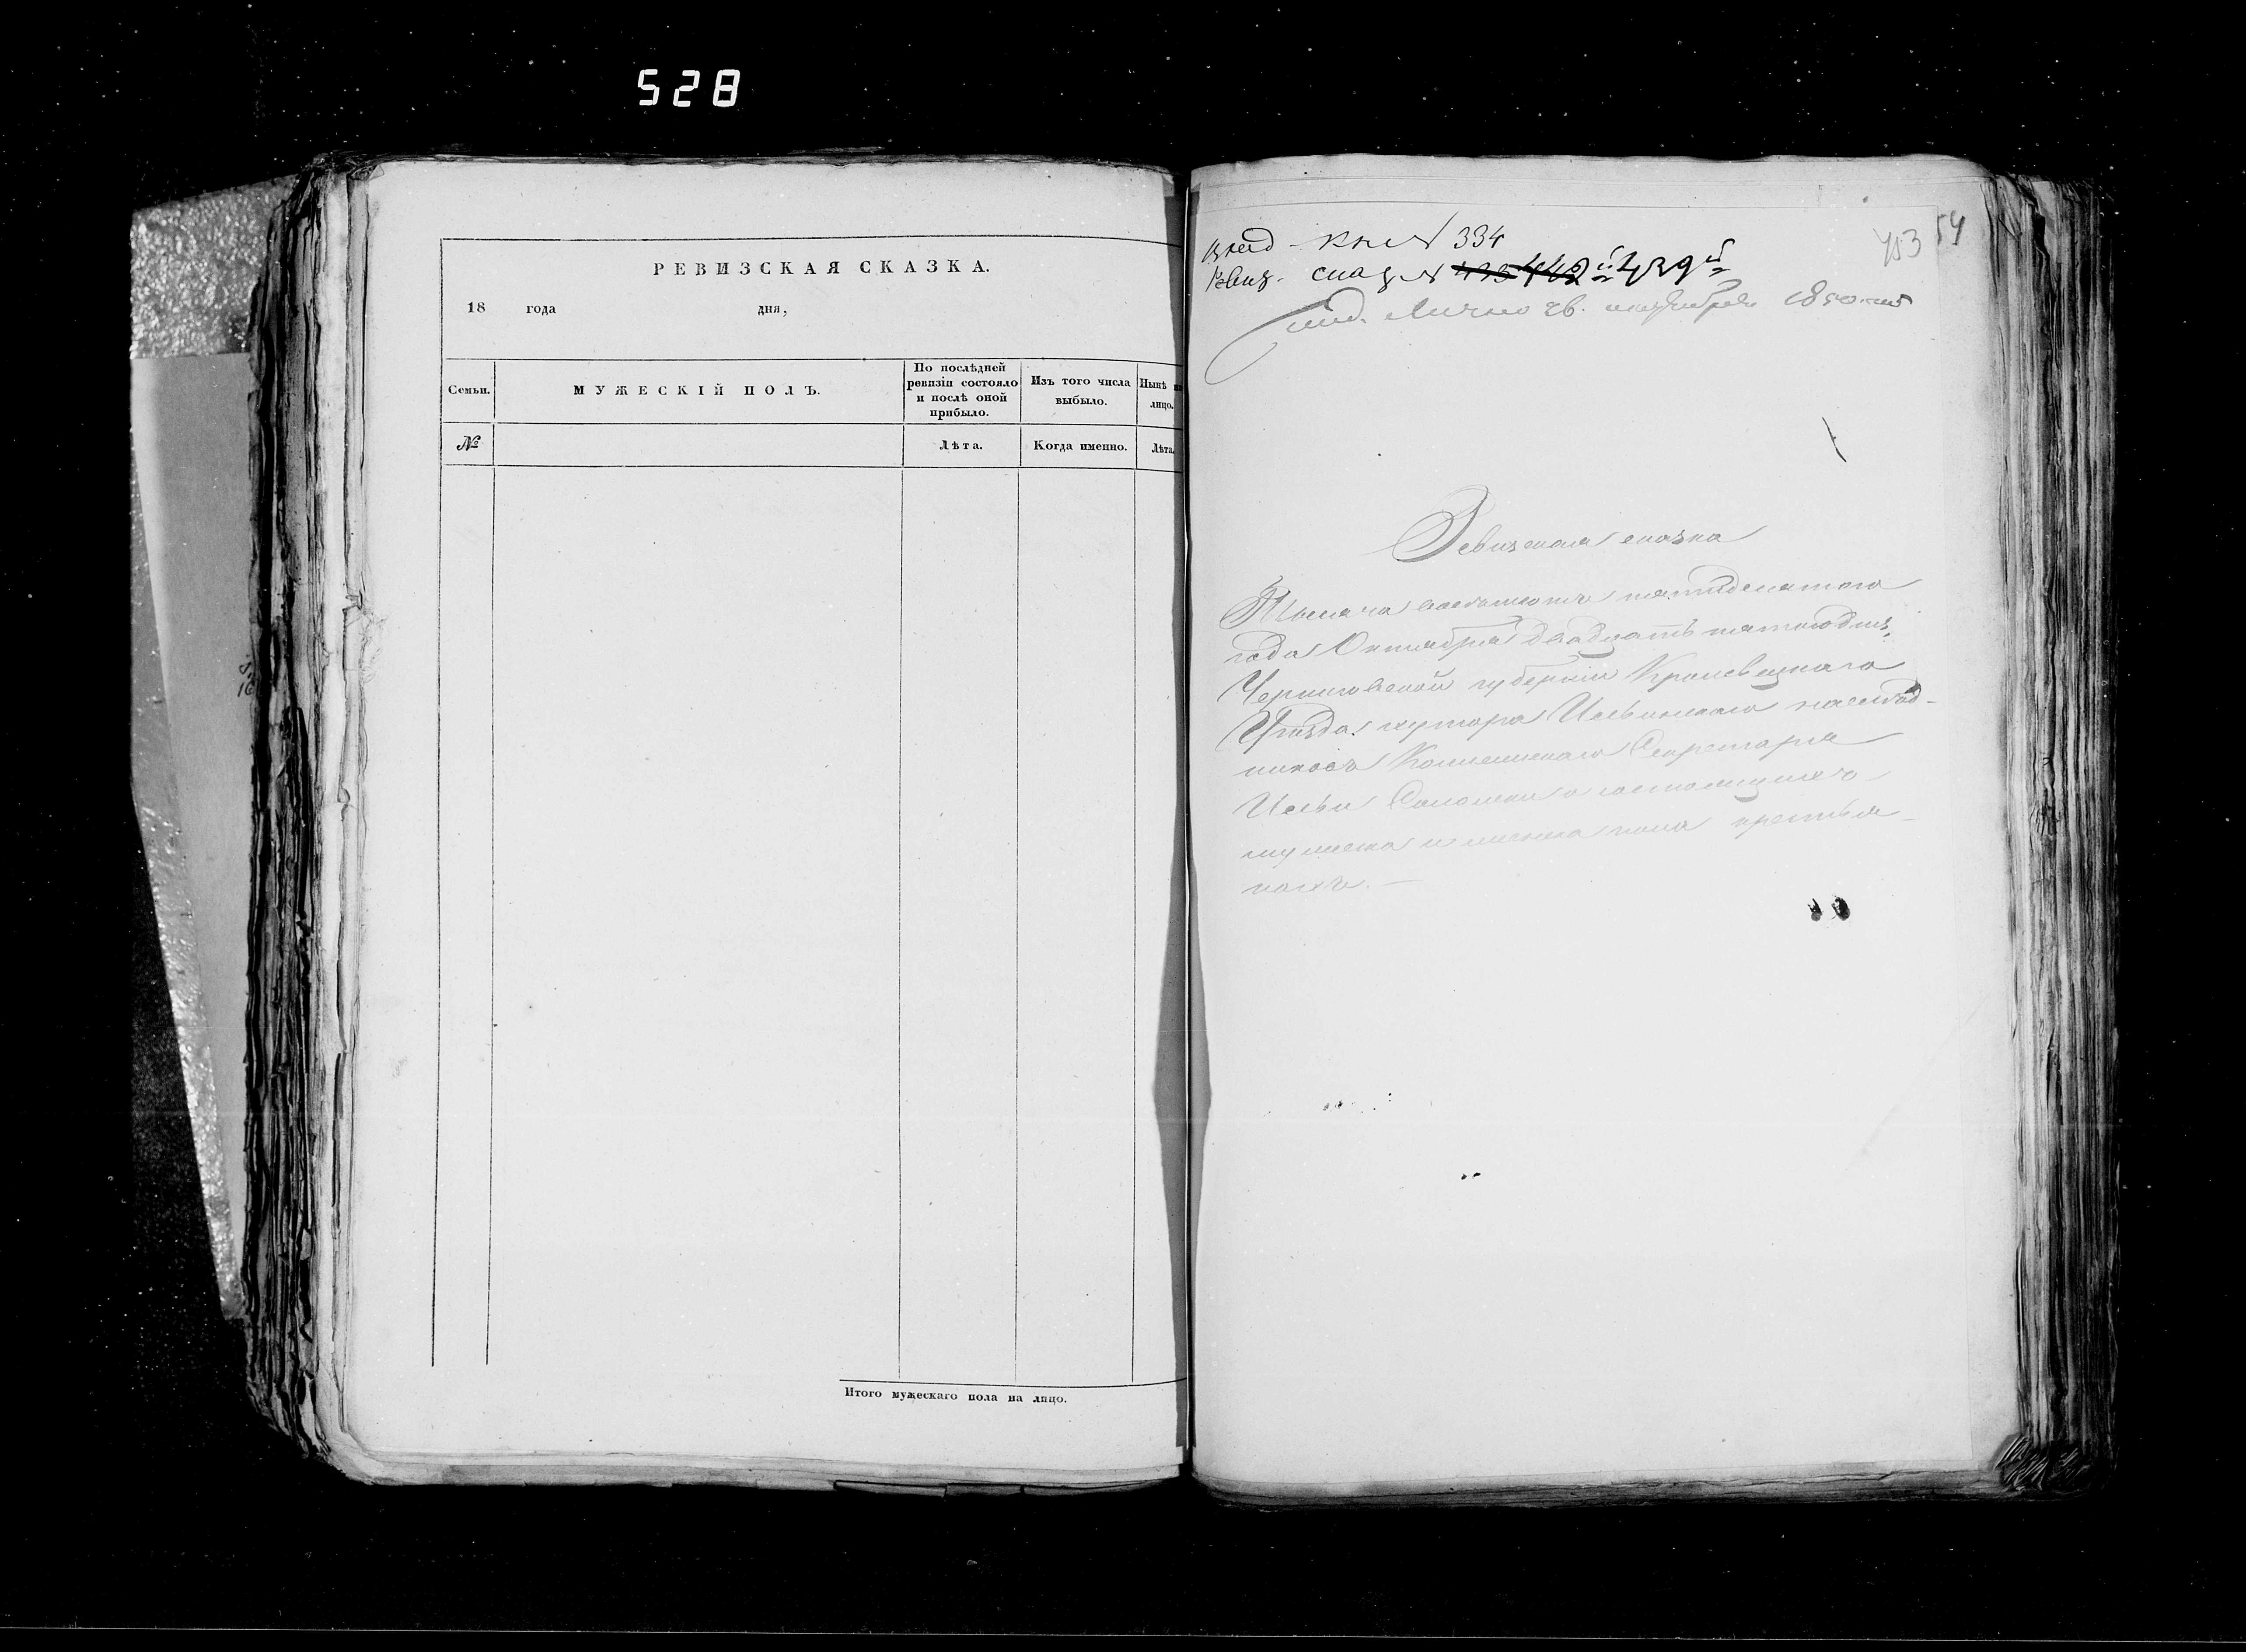 528
РЕВИЗСКАЯ СКАЗКА.
18 года дня,
Семьи.
МУЖЕСКІЙ ПОЛЪ.
По послѣдней ревизіи состояло и послѣ оной прибыло.
Изъ того числа выбыло.
Нынѣ на лицо.
№
Лѣта.
Когда именно.
Лѣта.
Итого мужескаго пола на лицо.
453 54
кн № 334
Ревиз. сказ № 439
Лично октября 1850
Ревизская сказка
Тысяча восемьсотъ пятидесятого
года Октября двадцать пятого дня,
Черниговской губерніи Кролевецкаго
Уѣзда хутора Ильинскаго наслѣд-
никовъ Коллежскаго Секретаря
Ильи о состоящихъ
мужеска и женска пола крестья-
нахъ.